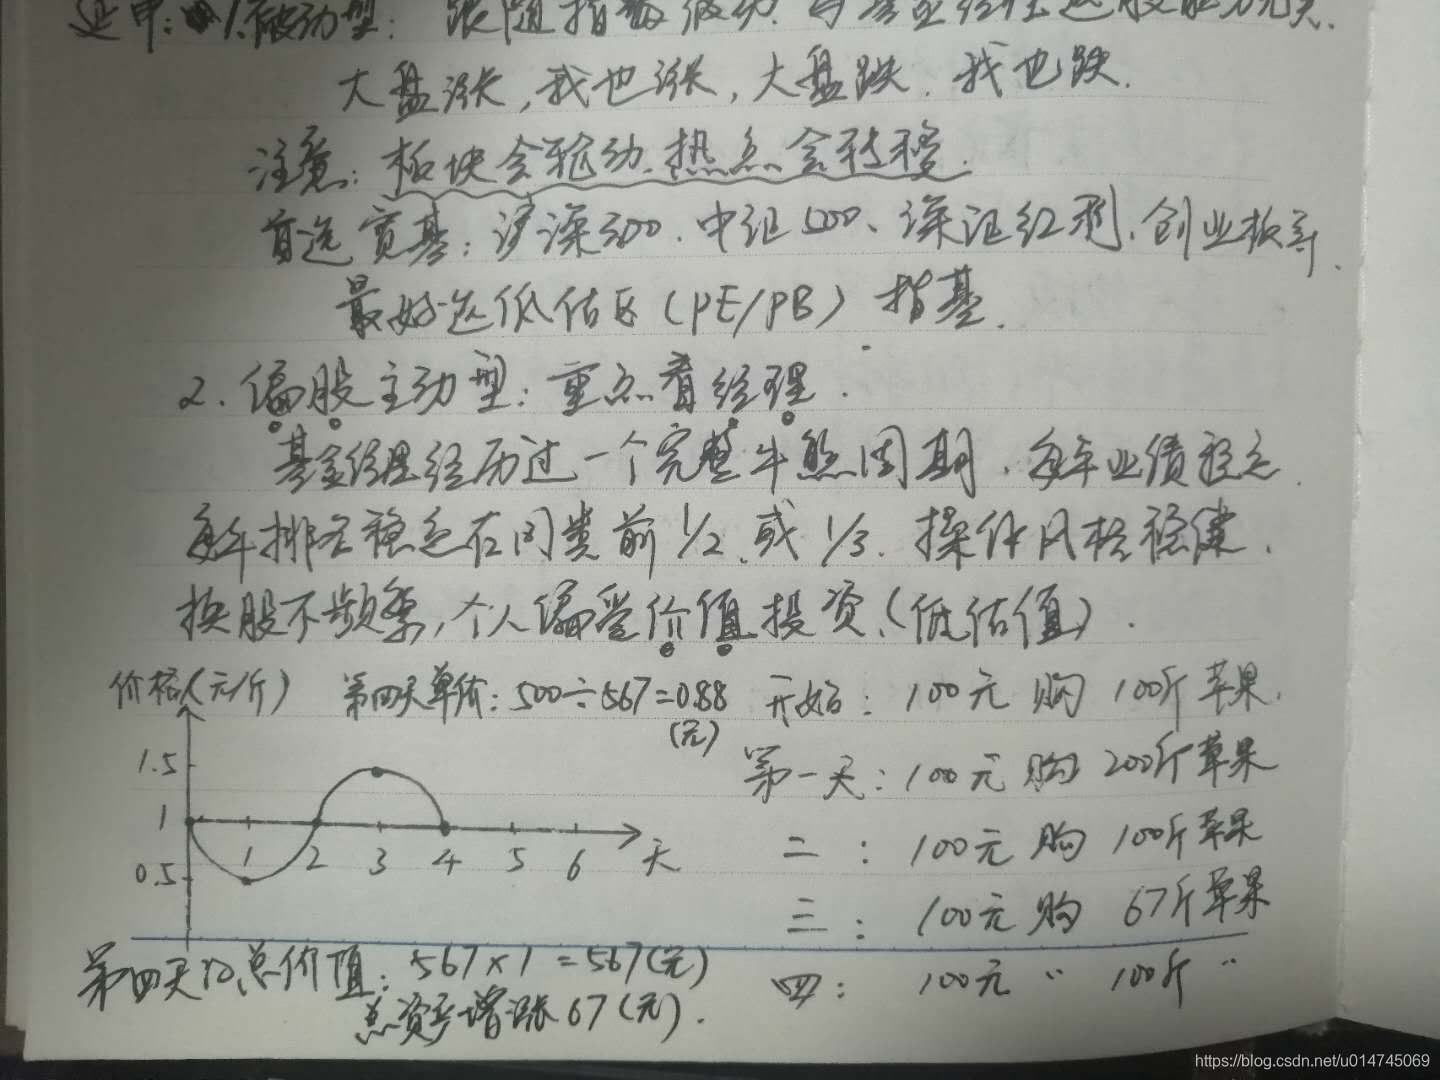 延申：1.被动型：跟随指数波动.与基金经理选股能力无关.
大盘涨,我也涨,大盘跌.我也跌.
注意：板块会轮动.热点会转移.
首选宽基：沪深300.中证500、深证红利、创业板等.
最好选低估区(PE/PB)指基.
2.偏股主动型：重点看经理.
基金经理经历过一个完整牛熊周期.每年业绩稳定.
每年排名稳定在同类前1/2.或1/3.操作风格稳健.
换股不频繁,个人偏爱价值投资、(低估值).
价格(元/斤) 第四天单价：500÷567=0.88(元) 开始：100元购100斤苹果.
1.5 第一天：100元购200斤苹果
1 二：100元购100斤苹果
1 2 3 4 5 6 天
0.5 三：100元购67斤苹果
第四天总价值：567×1=567(元) 四：100元 〃 100斤 〃
总资产增涨67(元).
https://blog.csdn.net/u014745069